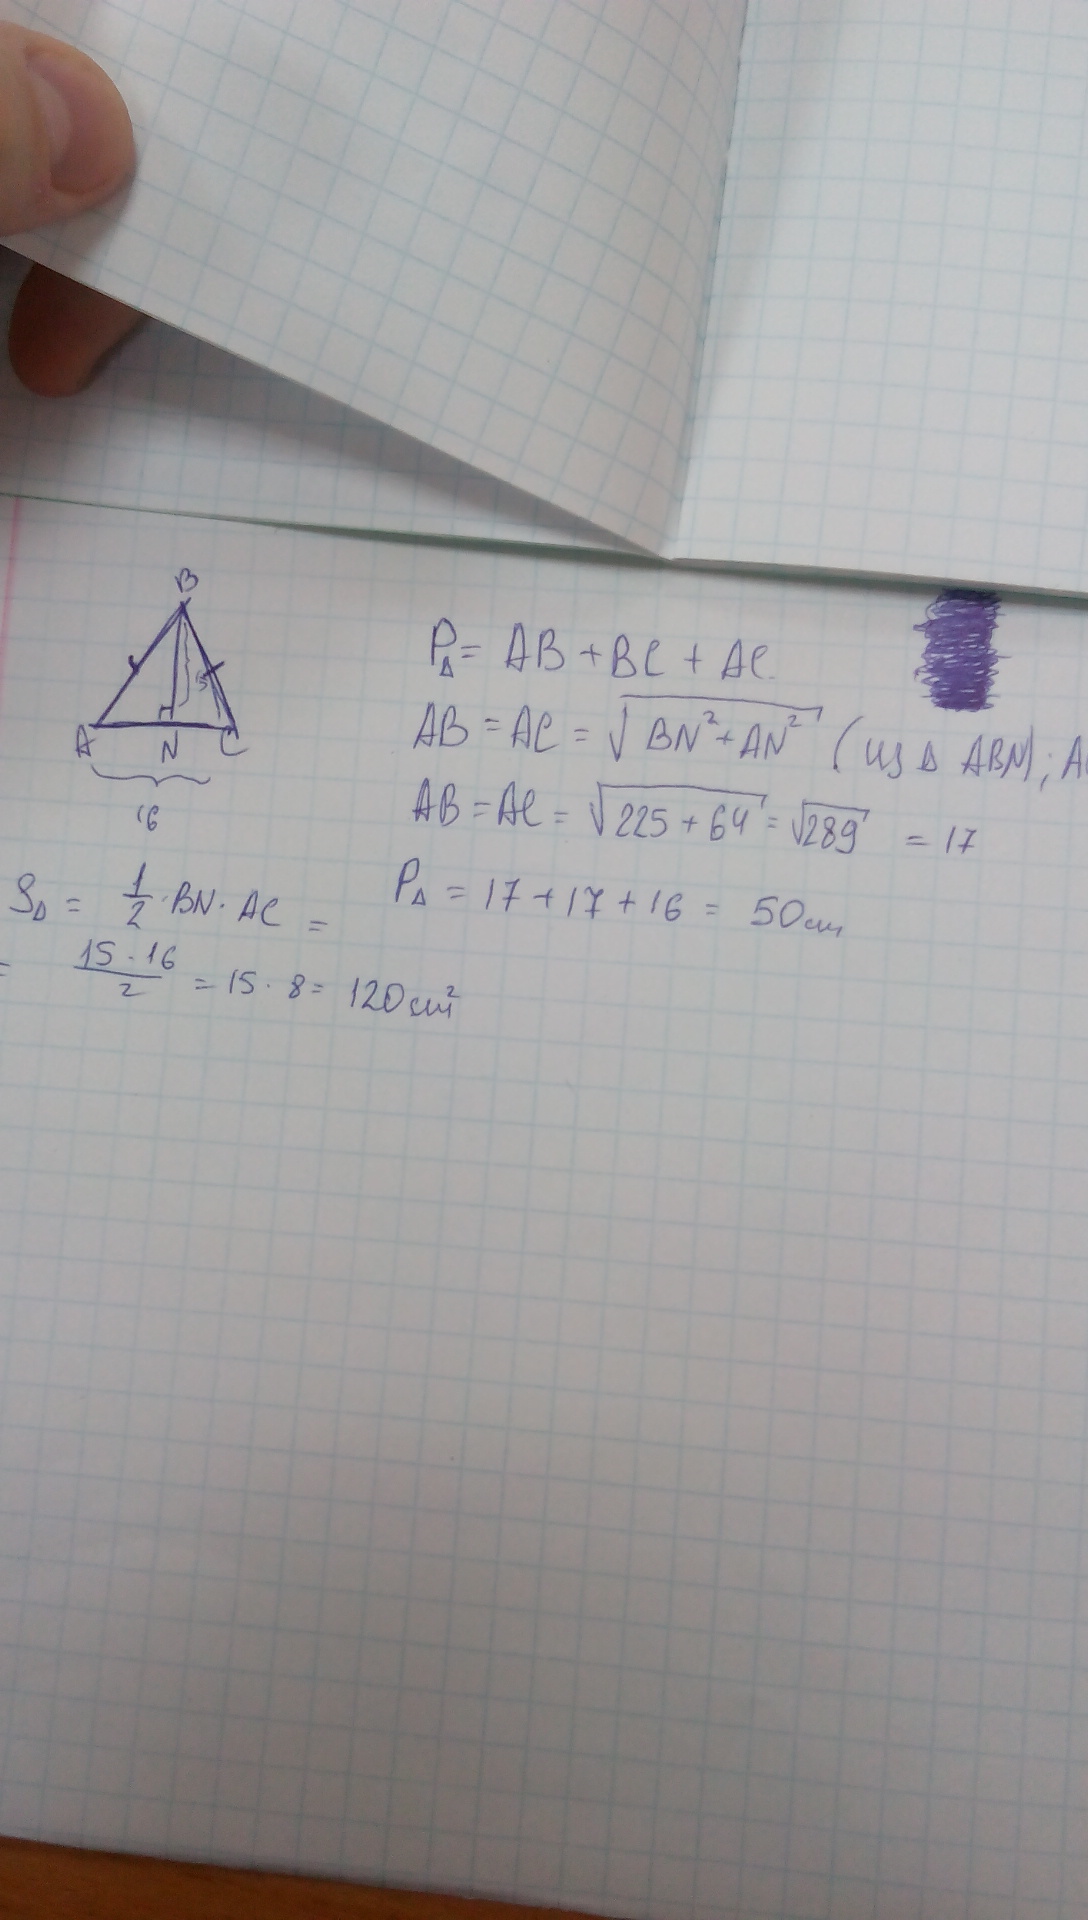 B
15
A N C
16
P△ = AB + BC + AC
AB = AC = √BN² + AN² (из △ ABN);
AB = AC = √225 + 64 = √289 = 17
P△ = 17 + 17 + 16 = 50 см
S△ = 1/2 · BN · AC =
= 15 · 16 / 2 = 15 · 8 = 120 см²